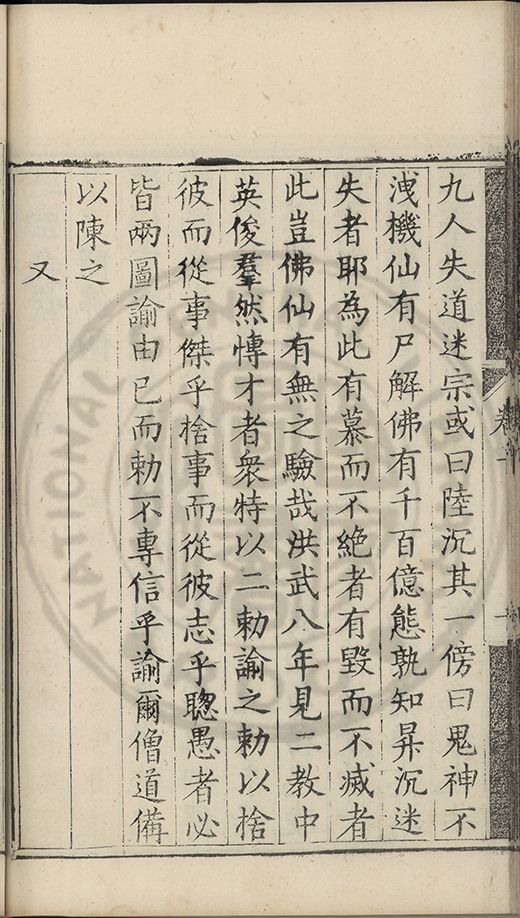 九人失道迷宗或曰陸沉其一傍曰鬼神不
洩機仙有尸解佛有千百億態孰知昇沉迷
失者耶為此有慕而不絶者有毀而不滅者
此豈佛仙有無之驗哉洪武八年見二教中
英俊羣然愽才者衆特以二勅諭之勅以捨
彼而從事傑乎捨事而從彼志乎聦愚者必
皆兩圖諭由已而勅不專信乎諭爾僧道備
以陳之
又